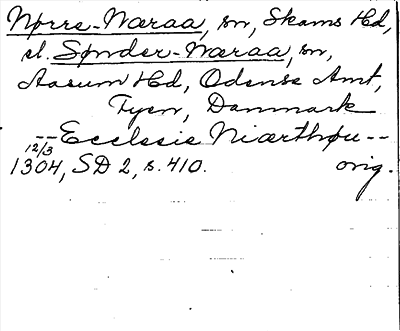 Nørre-Næraa, sn, Skams Hd,
el. Sønder-Næraa, sn,
Aasum Hd, Odense Amt,
Fyen, Danmark
-- Ecclesie Niærthøu --
12/3
1304, SD 2, s. 410. orig.